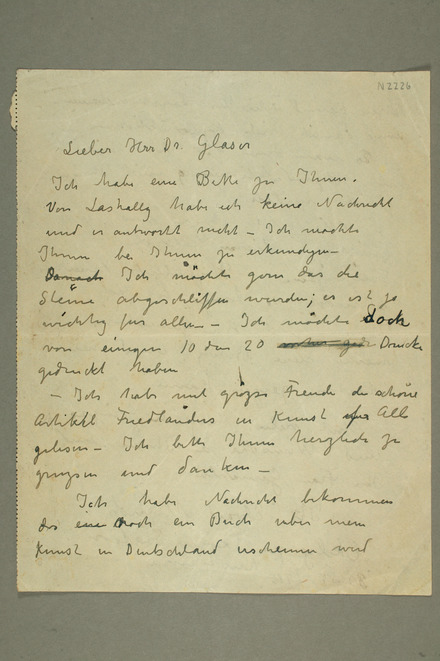 N 2226
Lieber Herr Dr. Glaser
Ich habe eine Bitte zu Ihnen.
Von Lassally habe ich keine Nachricht
und er antwortet nicht – Ich möchte
Ihnen bei Ihnen zu erkundigen –
Danach Ich möchte gern das die
Steine abgeschliffen wurden; es ist ja
wichtig für allen – Ich möchte doch
von einigen 10 den 20 Drucke
gedruckt haben
– Ich habe mit grosse Freude die schöne
Artikkel Friedländers in Kunst für Alle
gelesen – Ich bitte Ihnen herzlich zu
grüssen und danken –
Ich habe Nachricht bekommen
das eine noch ein Buch über mein
Kunst in Deutschland erscheinen wird